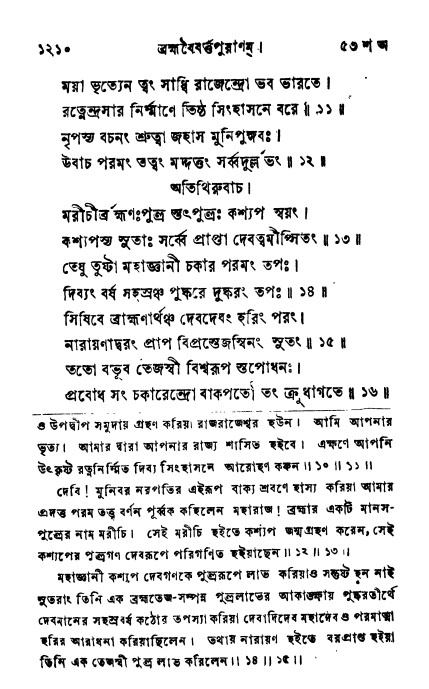 ১২১০ ব্রহ্মবৈবর্ত্তপুরাণম্। ৫৩ শ অ
ময়া ভৃত্যেন ত্বং সাব্ধি রাজেন্দ্রো ভব ভারতে।
রত্নেন্দ্রসার নির্ম্মাণে তিষ্ঠ সিংহাসনে বরে॥ ১১॥
নৃপস্য বচনং শ্রুত্বা জহাস মুনিপুঙ্গবঃ।
উবাচ পরমং তত্ত্বং মদ্দত্তং সর্ব্বদুর্ল্লভং॥ ১২॥
অতিথিরুবাচ।
মরীচীর্ব্রহ্মণঃপুত্র স্তৎপুত্রঃ কশ্যপ স্বয়ং।
কশ্যপস্য সুতাঃ সর্ব্বে প্রাপ্তা দেবত্বমীপ্সিতং॥ ১৩॥
তেষু তুষ্টা মহাজ্ঞানী চকার পরমং তপঃ।
দিব্যং বর্ষ সহস্রঞ্চ পুষ্করে দুষ্করং তপঃ॥ ১৪॥
সিষিবে ব্রাহ্মণার্থঞ্চ দেবদেবং হরিং পরং।
নারায়ণাদ্বরং প্রাপ বিপ্রস্তেজস্বিনং সুতং॥ ১৫॥
ততো বভূব তেজস্বী বিশ্বরূপ স্তপোধনঃ।
প্রবোধ সং চকারেন্দ্রো বাকপতৌ তং ক্রুধাগতে॥ ১৬॥
ও উপদ্বীপ সমুদায় গ্রহণ করিয়া রাজরাজেশ্বর হউন। আমি আপনার
ভৃত্য। আমার দ্বারা আপনার রাজ্য শাসিত হইবে। এক্ষণে আপনি
উৎকৃষ্ট রত্ননির্ম্মিত দিব্য সিংহাসনে আরোহণ করুন॥ ১০॥ ১১॥
দেবি! মুনিবর নরপতির এইরূপ বাক্য শ্রবণে হাস্য করিয়া আমার
প্রদত্ত পরম তত্ত্ব বর্ণন পূর্ব্বক কহিলেন মহারাজ! ব্রহ্মার একটি মানস-
পুত্রের নাম মরীচি। সেই মরীচি হইতে কশ্যপ জন্মগ্রহণ করেন, সেই
কশ্যপের পুত্রগণ দেবরূপে পরিগণিত হইয়াছেন॥ ১২॥ ১৩॥
মহাজ্ঞানী কশ্যপ দেবগণকে পুত্ররূপে লাভ করিয়াও সন্তুষ্ট হন নাই
সুতরাং তিনি এক ব্রহ্মতেজ-সম্পন্ন পুত্রলাভের আকাঙ্ক্ষায় পুষ্করতীর্থে
দেবমানের সহস্রবর্ষ কঠোর তপস্যা করিয়া দেবাদিদেব মহাদেব ও পরমাত্মা
হরির আরাধনা করিয়াছিলেন। তথায় নারায়ণ হইতে বরপ্রাপ্ত হইয়া
তিনি এক তেজস্বী পুত্র লাভ করিলেন॥ ১৪॥ ১৫॥